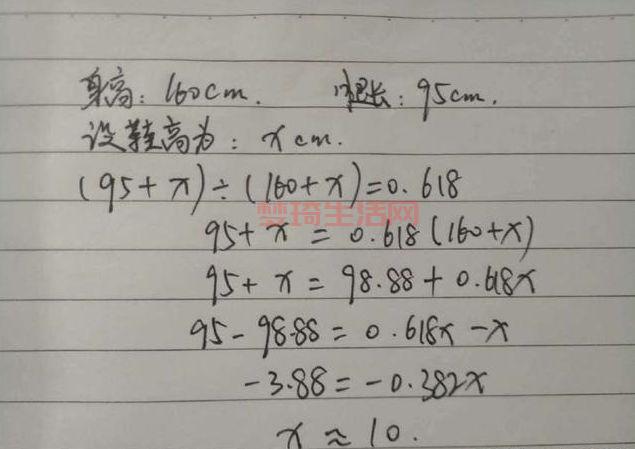 身高：160cm. 腿长：95cm.
设鞋高为：x cm.
(95+x)÷(160+x)=0.618
梦琦生活网
95+x=0.618(160+x)
95+x=98.88+0.618x
95-98.88=0.618x-x
-3.88=-0.382x
x≈10.